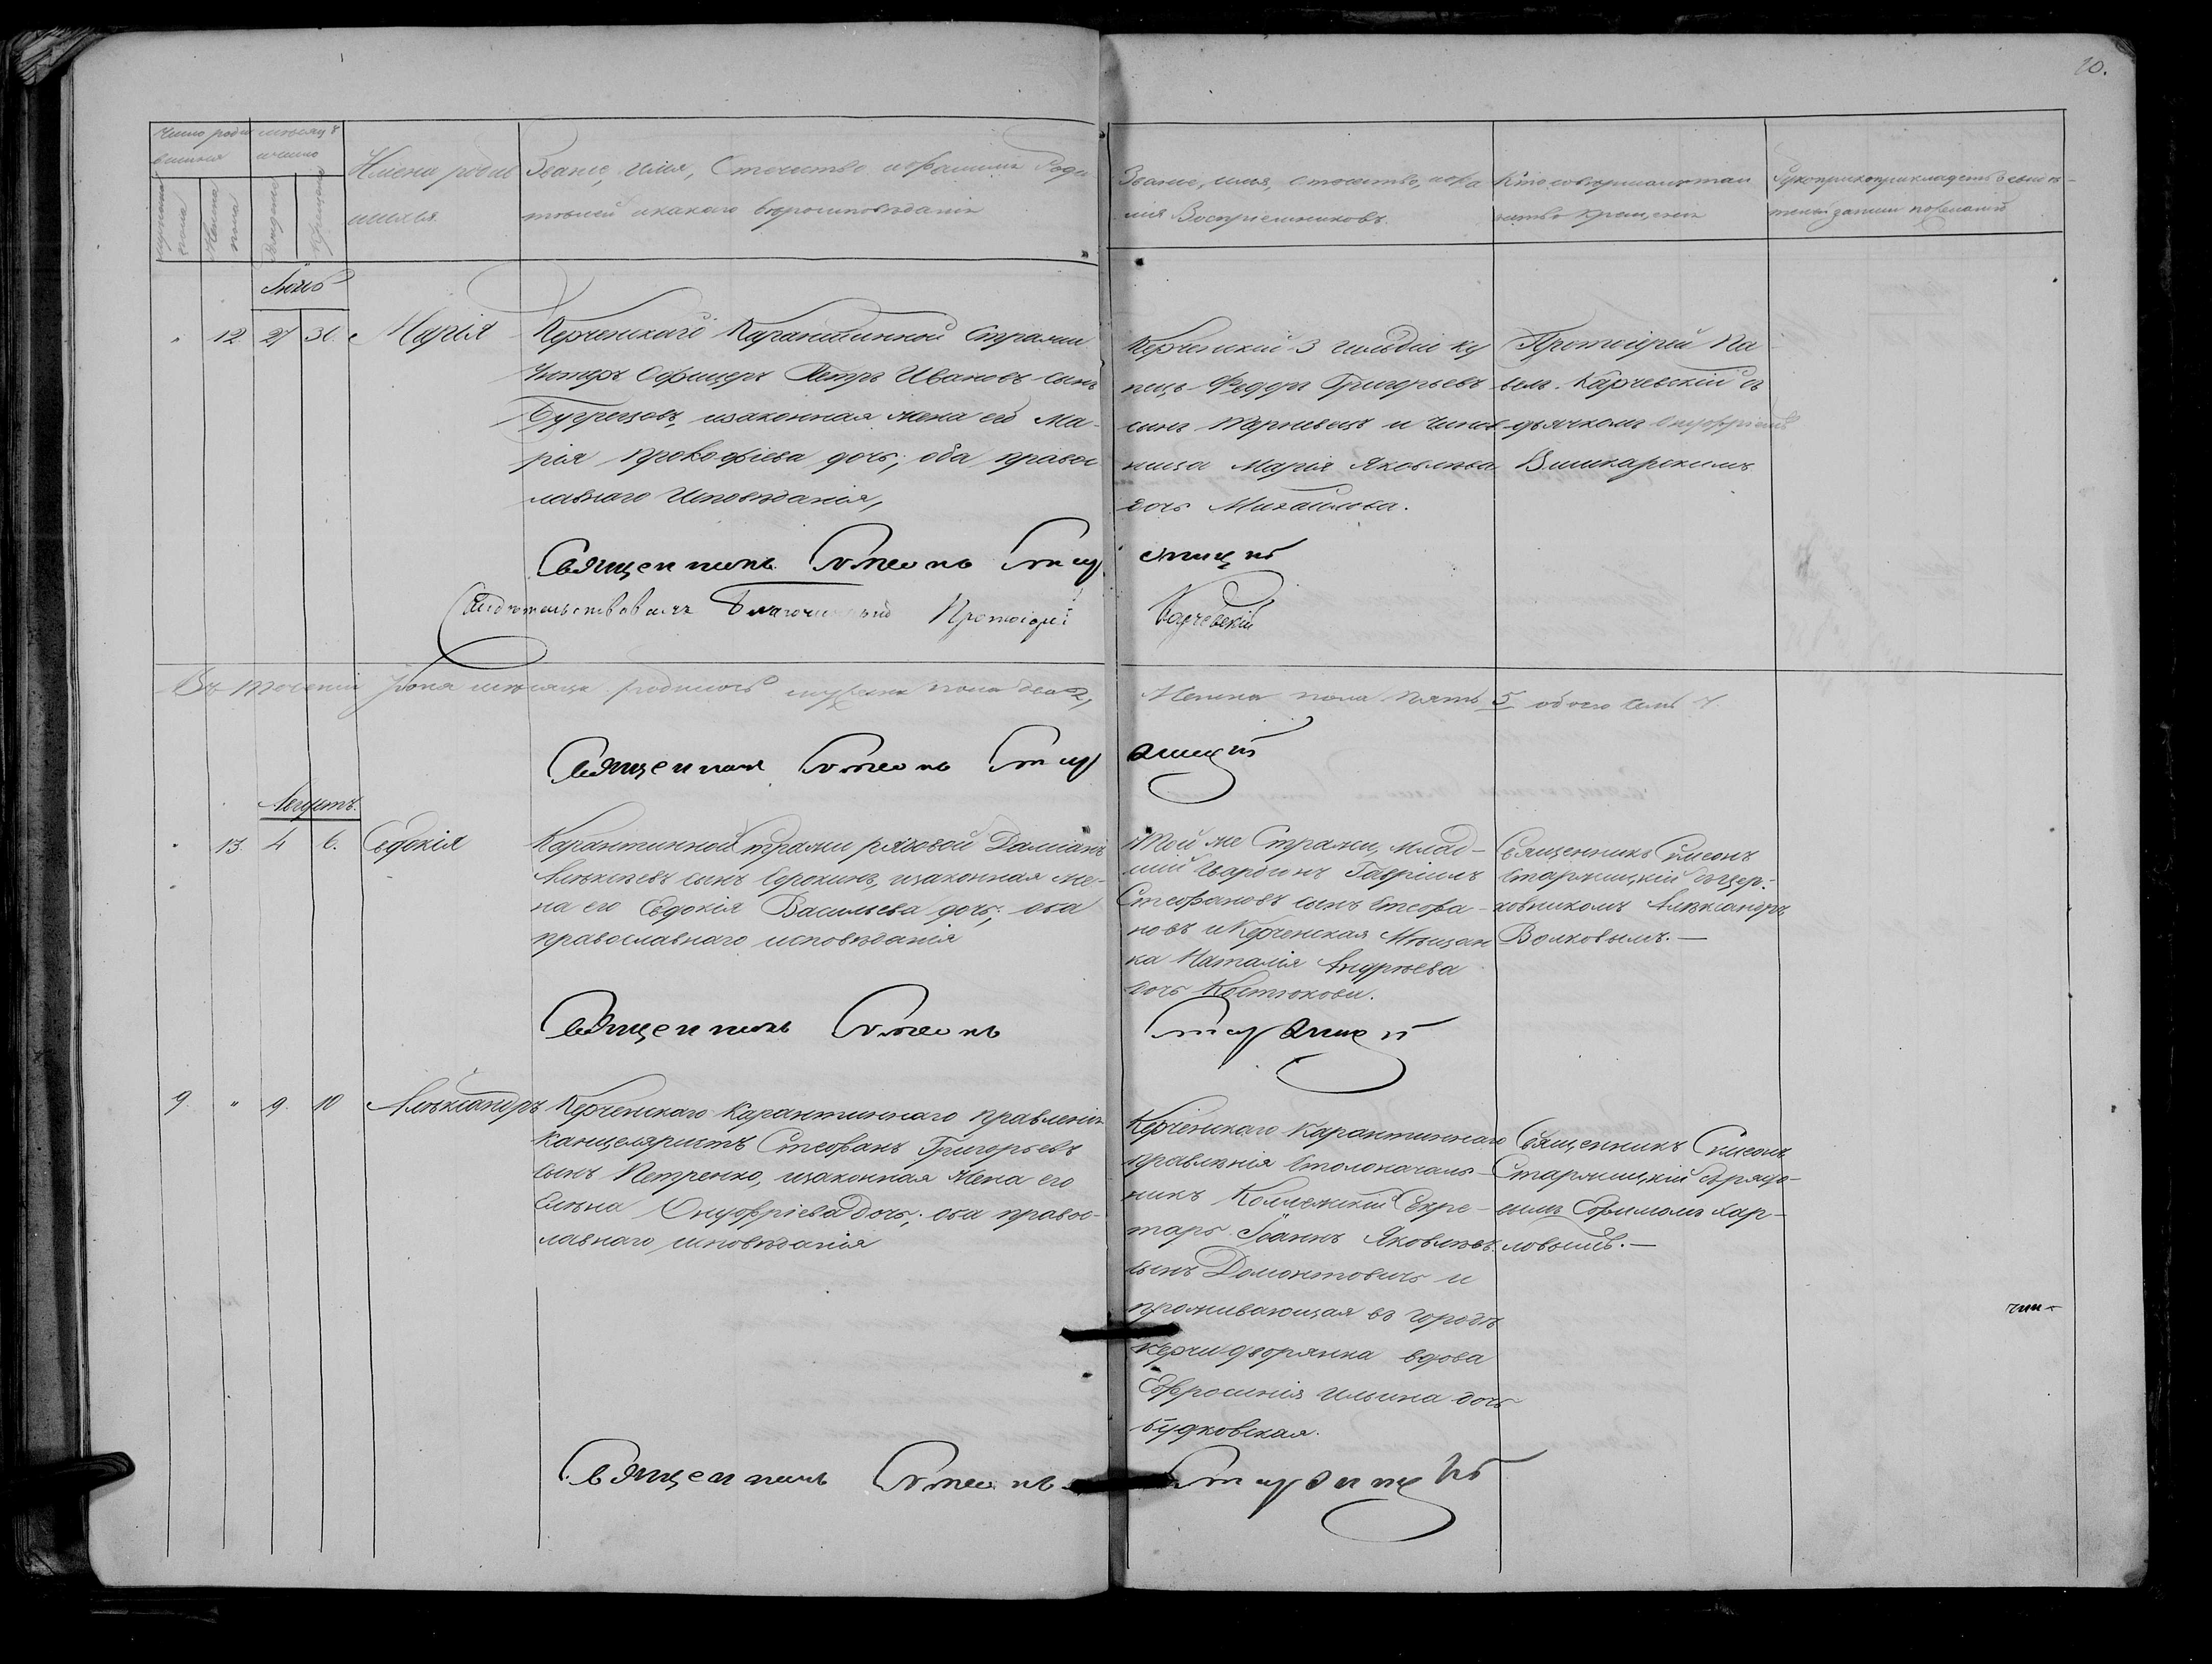 10.
Число роди
вшихся
мѣсяцъ
и число
Имена родив
шихся
Званіе, имя, Отчество и фамилія Роди
телей и какаго вѣроисповѣданія
Званіе, имя, отчество, и фа
милія Воспріемниковъ.
Кто совершилъ таин
ство Крещенія
Рукоприкладство свидѣ-
телей записи по желанію
Женска
пола
рожденія
Крещенія
Іюль
" 12 27 30. Марія
Керченскаго Карантинной Стражи
Унтеръ Офицеръ Петръ Ивановъ сынъ
Бугрецовъ, и законная жена его Ма-
рія Прокофіева дочь, оба правос
лавнаго Исповѣданія,
Керченскій 3 гильдіи ку
пецъ Федоръ Григорьевъ
сынъ Тернивецъ и Чинов
ница Марія Яковлева
дочь Михайлова.
Протоіерей Па
велъ Карчевскій съ
дьячкомъ Онуфріемъ
Вишкарскимъ
Священникъ Сѵмеонъ Стар жицкій
Свидѣтельствовалъ Благочинный Протоіерей Карчевскій
Въ теченіи Іюля мѣсяца родилось мужска пола два 2, Женска пола пять 5 обоего семь 7.
Священникъ Сѵмеонъ Стар жицкій
Августъ.
" 13. 4 6. Евдокія
Карантинной стражи рядовой Даміанъ
Алексѣевъ сынъ Сорокинъ, и законная же-
на его Евдокія Васильева дочь; оба
православнаго исповѣданія
Той же Стражи, млад-
шій Гвардіонъ Гавріилъ
Стефановъ сынъ Стефа-
новъ и Керченская Мѣщан
ка Наталія Андреева
дочь Костюкова.
Священникъ Сѵмеонъ
Старжицкій съ цер-
ковникомъ Александръ
Волковымъ.—
Священникъ Сѵмеонъ Старжицкій
9. " 9. 10 Александръ
Керченскаго Карантиннаго Правленія
Канцеляристъ Стефанъ Григорьевъ
сынъ Петренко, и законная Жена его
Елена Онуфріева дочь; оба правос-
лавнаго исповѣданія
Керченскаго Карантиннаго
правленія Столоначаль-
никъ Коллежскій Секре-
тарь Іоаннъ Яковлевъ
сынъ Домонтовичъ и
проживающая въ городѣ
Керчи дворянка вдова
Евфросинія Ильина дочь
Будковская.
Священникъ Сѵмеонъ
Старжицкій съ рядо-
вымъ Ефимомъ Кар-
ловымъ.—
Священникъ Сѵмеонъ Старжицкій